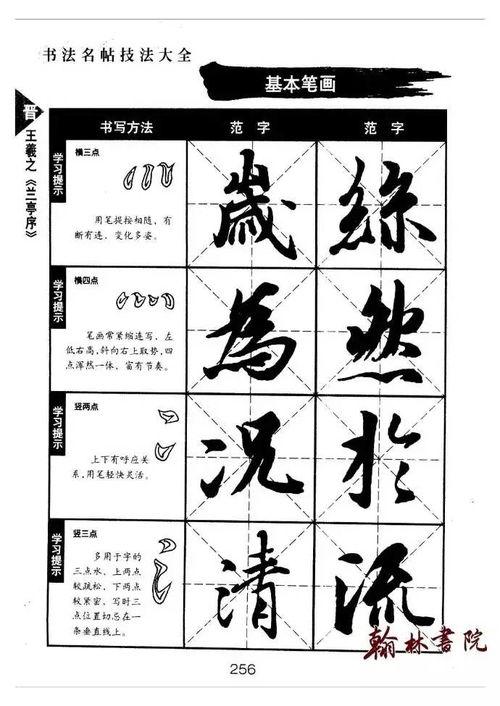 书法名帖技法大全
基本笔画
晋
王羲之《兰亭序》
书写方法
范字
范字
学习提示
横三点
用笔提按相随，有
断有连，变化多姿。
歲
絲
学习提示
横四点
笔画常紧缩连写，左
低右高，斜向右上取势，四
点浑然一体，富有节奏。
為
然
学习提示
竖两点
上下有呼应关
系，用笔轻快灵活。
况
於
学习提示
竖三点
多用于字的
三点水，上两点
较疏松，下两点
较紧密，写时三
点位置切忌在一
条垂直线上。
清
流
翰林书院
256